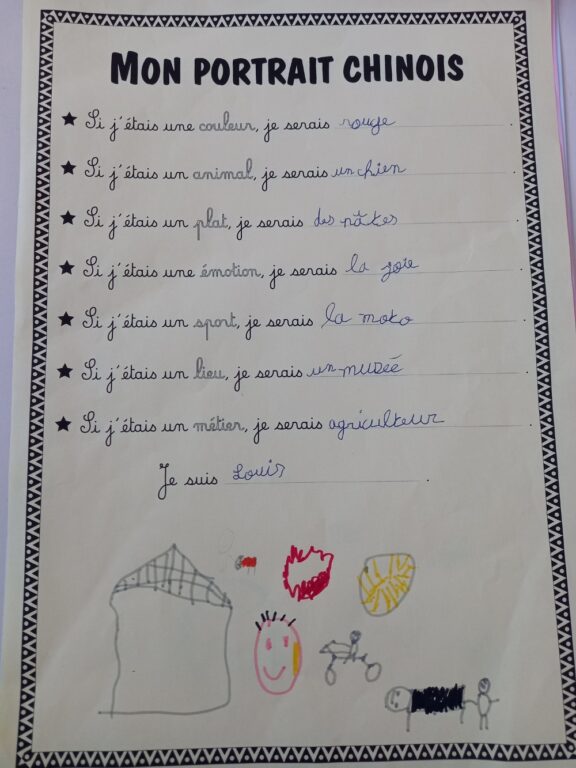 MON PORTRAIT CHINOIS
Si j'étais une couleur, je serais rouge.
Si j'étais un animal, je serais un chien.
Si j'étais un plat, je serais des pâtes.
Si j'étais une émotion, je serais la joie.
Si j'étais un sport, je serais la moto.
Si j'étais un lieu, je serais un muséé.
Si j'étais un métier, je serais agriculteur.
Je suis Louis.